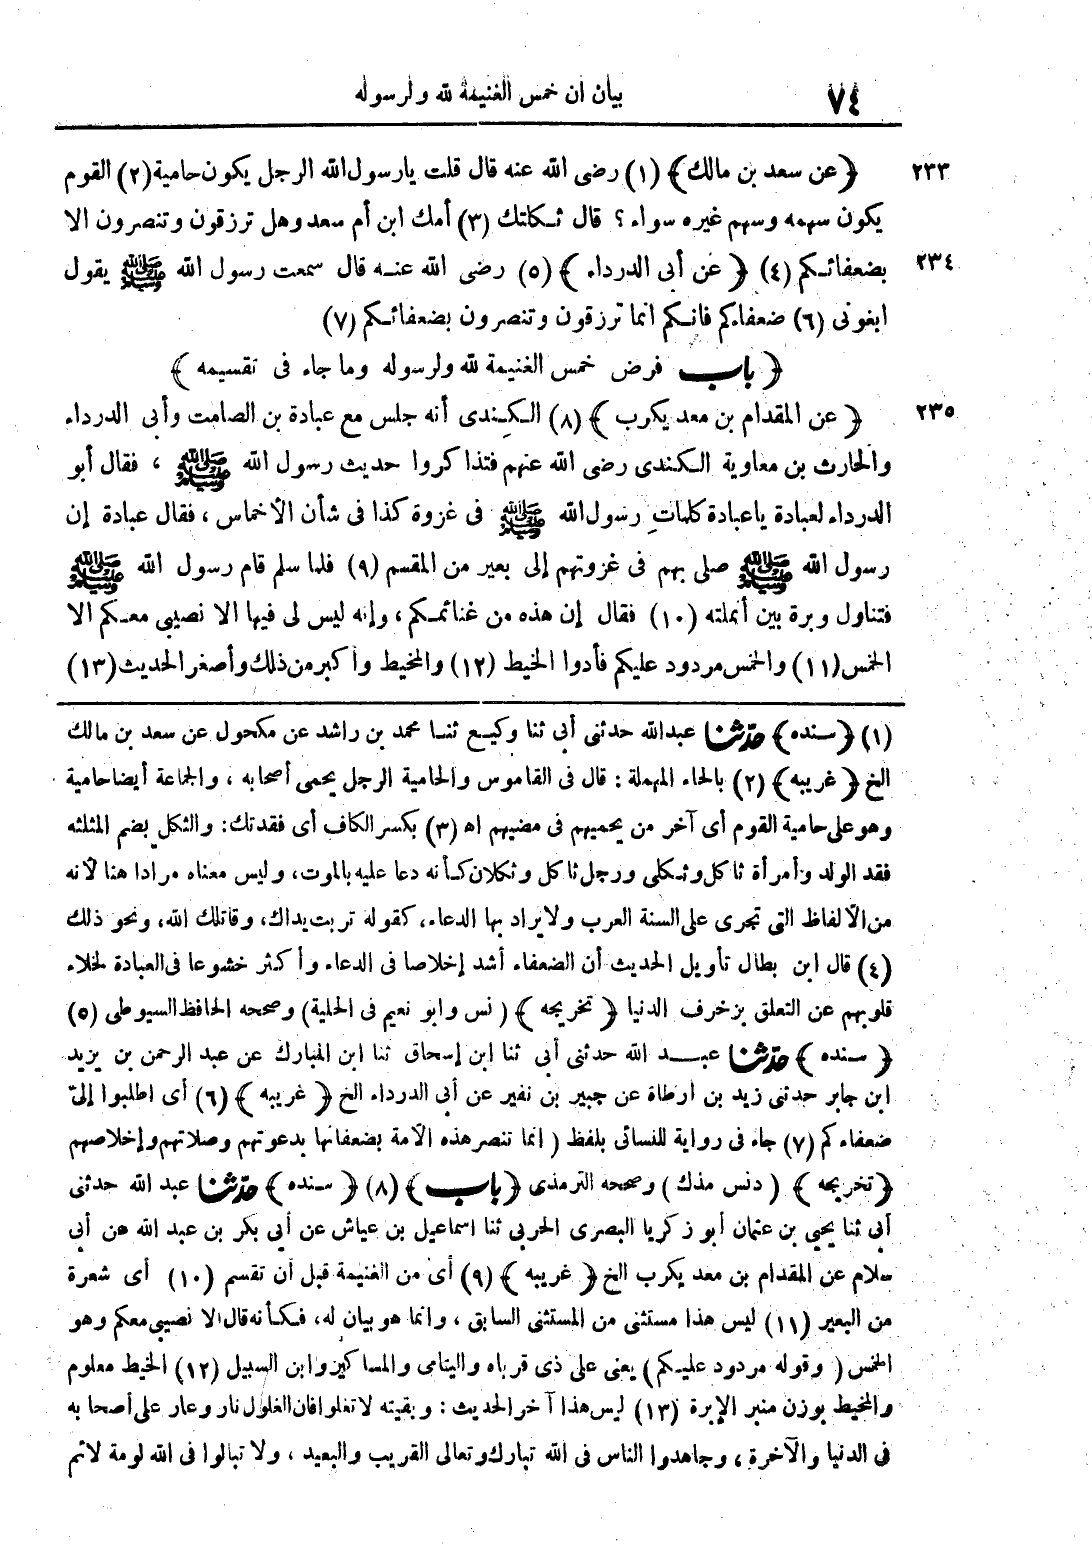 ٧٤ بيان ان خمس الغنيمة لله ولرسوله
٢٣٣ ﴿عن سعد بن مالك﴾ (١) رضى الله عنه قال قلت يارسول الله الرجل يكون حامية (٢) القوم
يكون سهمه وسهم غيره سواء ؟ قال ثكلتك (٣) أمك ابن أم سعد وهل ترزقون وتنصرون الا
٢٣٤ بضعفائكم (٤) ﴿عن أبى الدرداء﴾ (٥) رضى الله عنه قال سمعت رسول الله ﷺ يقول
ابغونى (٦) ضعفاءكم فانكم انما ترزقون وتنصرون بضعفائكم (٧)
﴿باب فرض خمس الغنيمة لله ولرسوله وما جاء فى تقسيمه﴾
٢٣٥ ﴿عن المقدام بن معد يكرب﴾ (٨) الكندى أنه جلس مع عبادة بن الصامت وأبى الدرداء
والحارث بن معاوية الكندى رضى الله عنهم فتذاكروا حديث رسول الله ﷺ ، فقال أبو
الدرداء لعبادة ياعبادة كلمات رسول الله ﷺ فى غزوة كذا فى شأن الأخماس ، فقال عبادة إن
رسول الله ﷺ صلى بهم فى غزوتهم إلى بعير من المقسم (٩) فلما سلم قام رسول الله ﷺ
فتناول وبرة بين أنملته (١٠) فقال إن هذه من غنائمكم ، وإنه ليس لى فيها الا نصيبى معكم الا
الخمس (١١) والخمس مردود عليكم فأدوا الخيط (١٢) والمخيط وأكبر من ذلك وأصغر الحديث (١٣)
(١) ﴿سنده﴾ حدثنا عبدالله حدثنى أبى ثنا وكيع ثنا محمد بن راشد عن مكحول عن سعد بن مالك
الخ ﴿غريبه﴾ (٢) بالحاء المهملة : قال فى القاموس والحامية الرجل يحمى أصحابه ، والجماعة أيضا حامية
وهو على حامية القوم أى آخر من يحميهم فى مضيهم اه (٣) بكسر الكاف أى فقدتك : والثكل بضم المثلثه
فقد الولد وأمرأة ثاكل وثكلى ورجل ثاكل وثكلان كأنه دعا عليه بالموت، وليس معناه مرادا هنا لأنه
من الألفاظ التى تجرى على السنة العرب ولايراد بها الدعاء، كقوله تربت يداك، وقاتلك الله، ونحو ذلك
(٤) قال ابن بطال تأويل الحديث أن الضعفاء أشد إخلاصا فى الدعاء وأكثر خشوعا فى العبادة لخلاء
قلوبهم عن التعلق بزخرف الدنيا ﴿تخريجه﴾ (نس وابو نعيم فى الحلية) وصححه الحافظ السيوطى (٥)
﴿سنده﴾ حدثنا عبد الله حدثنى أبى ثنا ابن إسحاق ثنا ابن المبارك عن عبد الرحمن بن يزيد
ابن جابر حدثنى زيد بن أرطاة عن جبير بن نفير عن أبى الدرداء الخ ﴿غريبه﴾ (٦) أى اطلبوا إلىّ
ضعفاءكم (٧) جاء فى رواية للنسائى بلفظ (انما تنصر هذه الأمة بضعفائها بدعوتهم وصلاتهم وإخلاصهم
﴿تخريجه﴾ (دنس مذك) وصححه الترمذى ﴿باب﴾ (٨) ﴿سنده﴾ حدثنا عبد الله حدثنى
أبى ثنا يحيى بن عثمان أبو زكريا البصرى الحربى ثنا اسماعيل بن عياش عن أبى بكر بن عبد الله عن أبى
سلام عن المقدام بن معد يكرب الخ ﴿غريبه﴾ (٩) أى من الغنيمة قبل أن تقسم (١٠) أى شعرة
من البعير (١١) ليس هذا مستثنى من المستثنى السابق ، وانما هو بيان له، فكأنه قال الا نصيبى معكم وهو
الخمس (وقوله مردود عليكم) يعنى على ذى قرباه واليتامى والمساكين وابن السبيل (١٢) الخيط معلوم
والمخيط بوزن منبر الإبرة (١٣) ليس هذا آخر الحديث : وبقيته لاتغلوا فان الغلول نار وعار على أصحابه
فى الدنيا والآخرة ، وجاهدوا الناس فى الله تبارك وتعالى القريب والبعيد ، ولا تبالوا فى الله لومة لائم